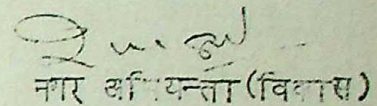 नगर अभियन्ता (विकास)